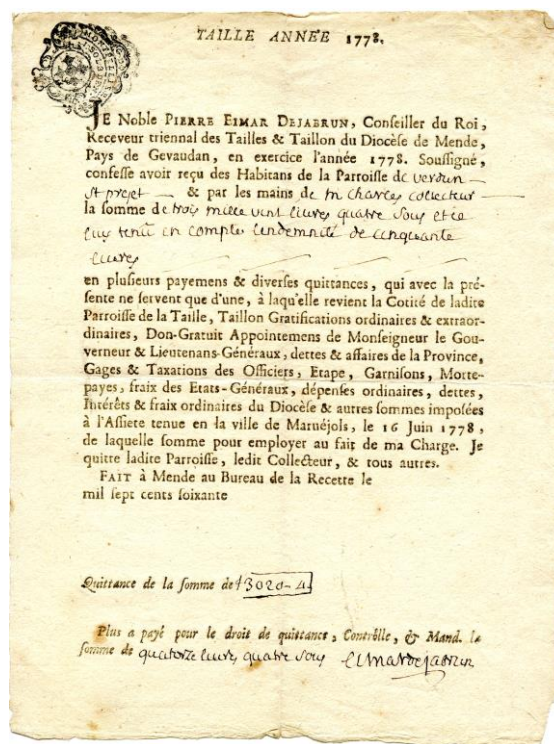 TAILLE ANNÉE 1778.
JE Noble PIERRE EIMAR DEJABRUN, Conseiller du Roi,
Receveur triennal des Tailles & Taillon du Diocèse de Mende,
Pays de Gevaudan, en exercice l'année 1778. Soussigné,
confesse avoir reçu des Habitans de la Parroisse de verdun
st projet & par les mains de m charles collecteur
la somme de trois mille vint livres quatre sous et ie
luy tenu en compte lindemnité de cinquante
livres
en plusieurs payemens & diverses quittances, qui avec la pré-
sente ne servent que d'une, à laqu'elle revient la Cotité de ladite
Parroisse de la Taille, Taillon Gratifications ordinaires & extraor-
dinaires, Don-Gratuit Appointemens de Monseigneur le Gou-
verneur & Lieutenans-Généraux, dettes & affaires de la Province,
Gages & Taxations des Officiers, Etape, Garnisons, Morte-
payes, fraix des Etats-Généraux, dépenses ordinaires, dettes,
Intérêts & fraix ordinaires du Diocèse & autres sommes imposées
à l'Assiete tenue en la ville de Maruéjols, le 16 Juin 1778,
de laquelle somme pour employer au fait de ma Charge. Je
quitte ladite Parroisse, ledit Collecteur, & tous autres.
FAIT à Mende au Bureau de la Recette le
mil sept cents soixante
Quittance de la somme de 3020-4
Plus a payé pour le droit de quittance, Contrôlle, & Mand. la
somme de quatorze livres quatre sous Eimardejabrun